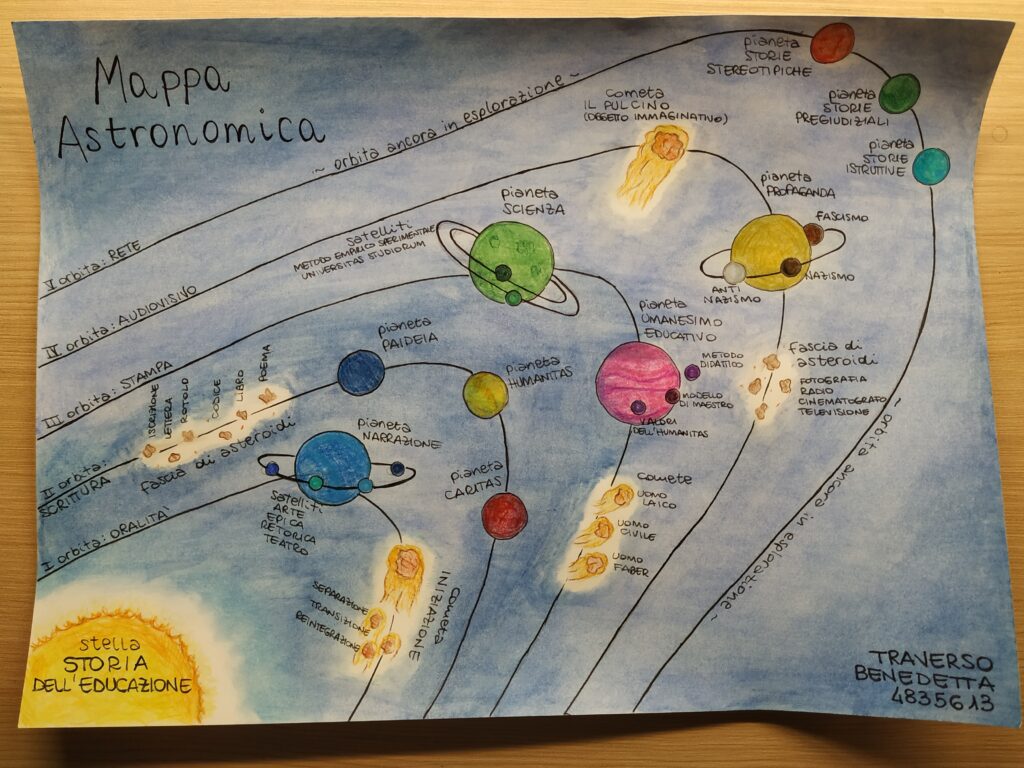 Mappa
Astronomica
~ orbita ancora in esplorazione ~
V orbita: RETE
pianeta
STORIE
STEREOTIPICHE
pianeta
STORIE
PREGIUDIZIALI
pianeta
STORIE
ISTRUTTIVE
~ orbita ancora in esplorazione ~
IV orbita: AUDIOVISIVO
cometa
IL PULCINO
(OGGETTO IMMAGINATIVO)
pianeta
PROPAGANDA
FASCISMO
NAZISMO
ANTI
NAZISMO
fascia di
asteroidi
FOTOGRAFIA
RADIO
CINEMATOGRAFO
TELEVISIONE
III orbita: STAMPA
satelliti
METODO EMPIRICO SPERIMENTALE
UNIVERSITAS STUDIORUM
pianeta
SCIENZA
pianeta
UMANESIMO
EDUCATIVO
METODO
DIDATTICO
MODELLO
DI MAESTRO
VALORI
DELL'HUMANITAS
comete
UOMO
LAICO
UOMO
CIVILE
UOMO
FABER
II orbita:
SCRITTURA
ISCRIZIONE
LETTERA
ROTOLO
CODICE
LIBRO
POEMA
fascia di asteroidi
pianeta
PAIDEIA
pianeta
HUMANITAS
pianeta
CARITAS
I orbita: ORALITA'
pianeta
NARRAZIONE
satelliti
ARTE
EPICA
RETORICA
TEATRO
cometa
INIZIAZIONE
SEPARAZIONE
TRANSIZIONE
REINTEGRAZIONE
stella
STORIA
DELL'EDUCAZIONE
TRAVERSO
BENEDETTA
4835613